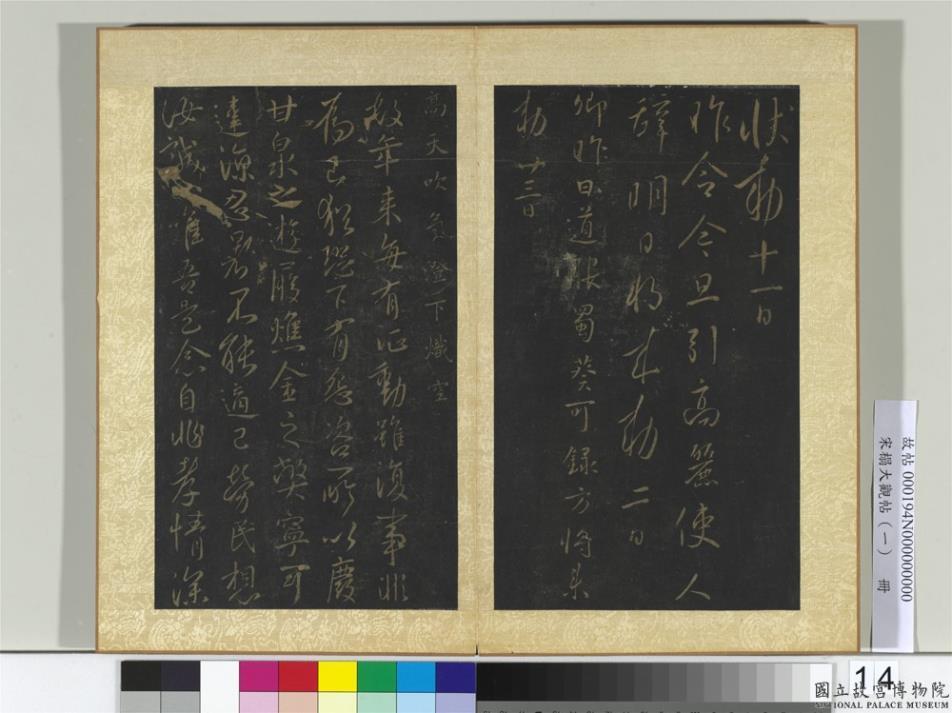 狀勅十一日
昨令今旦引高麗使人
辞明日将来勅二日
卿昨日道張蜀葵可録方将来
勅廿三日
高天吹氣證下熾空
故年来每有所動雖復事非
為己猶恐下有怨咨所以慶
甘泉之遊服燋金之弊寧可
違涼忍暑不能適己勞民想
汝誠雖吾是念自非孝情深
故帖000194N000000000
宋搨大觀帖（一） 冊
14
國立故宮博物院
NATIONAL PALACE MUSEUM